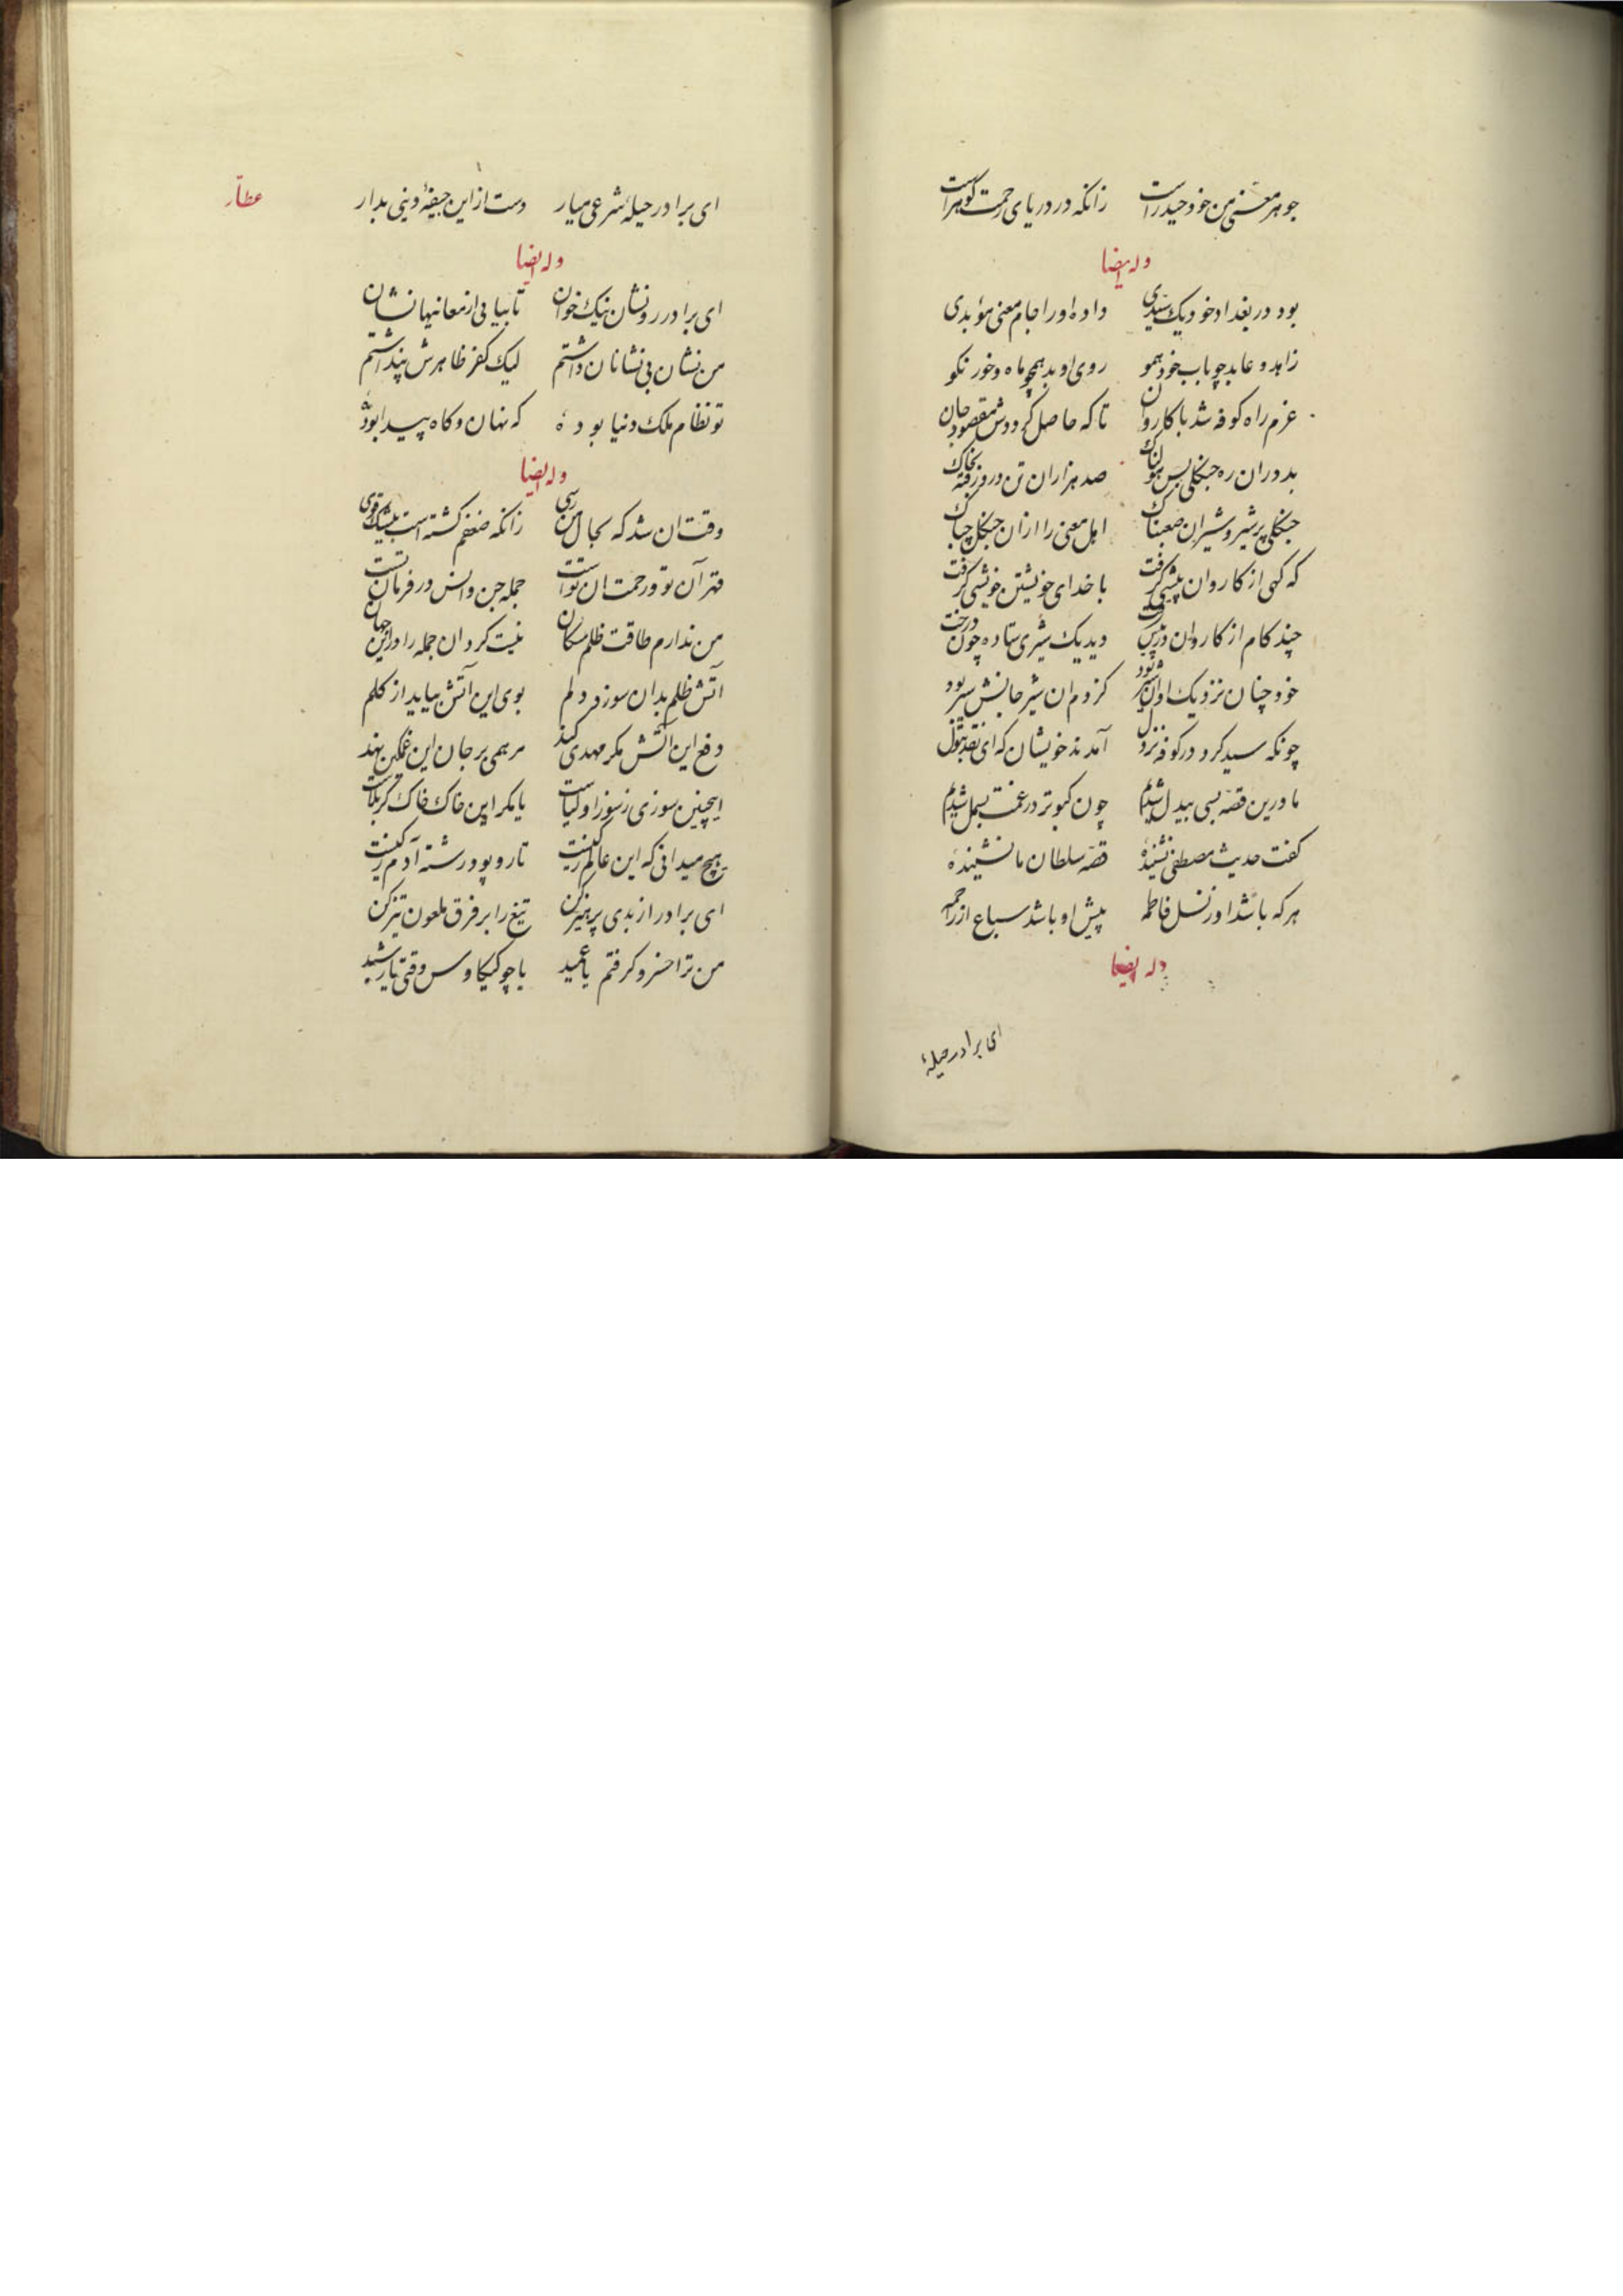 جوهر معنی من خود حیدر است زانکه در دریای رحمت گوهر است
وله ایضا
بود در بغداد خود یک سیدی داده او را جام معنی مؤبدی
زاهد و عابد چو باب خود همو روی او بد همچو ماه و خور نکو
عزم راه کوفه شد با کاروان تا که حاصل گرددش مقصود جان
بد در ان ره جنگلی بس هولناک صد هزاران تن درو رفته بخاک
جنگلی پر شیر و شیران صعبناک اهل معنی را از ان جنگل چه باک
که کهی از کاروان پیشی گرفت با خدای خویشتن خویشی گرفت
چند کام از کاروان در پیش رفت دید یک شیری ستاده چون درخت
خود چنان نزدیک او ان شیر بود کز دم ان شیر جانش سیر بود
چونکه سید کرد در کوفه نزول آمدند خویشان که ای نقد بتول
ما درین قصه بسی بیدل شدیم چون کبوتر در غمت بسمل شدیم
گفت حدیث مصطفی نشنیدهٔ قصه سلطان ما نشنیدهٔ
هر که باشد او ز نسل فاطمه پیش او باشد سباع از راحمه
وله ایضا
ای برادر حیلهٔ
ای برادر حیلهٔ شرعی میار دست از این جیفهٔ دینی بدار
عطار
وله ایضا
ای برادر رو نشان نیک خوان تا بیابی از معانیها نشان
من نشان بی نشانان داشتم لیک کفر ظاهرش پنداشتم
تو نظام ملک دنیا بودهٔ که نهان و کاه پیدا بودهٔ
وله ایضا
وقت ان شد که بحال من رسی زانکه ضعفم کشته است بیشک قوی
قهر آن تو و رحمت ان تو است جمله جن و انس در فرمان تست
من ندارم طاقت ظلم سکان نیست کردان جمله را در این جهان
آتش ظلم بدان سوزد دلم بوی این آتش بیاید از کلم
دفع این آتش مکر مهدی کند مرهمی بر جان این غمکین نهد
اینچنین سوزی ز سوز اولیاست یا مکر این خاک خاک کربلاست
هیچ میدانی که این عالم ز کیست تار و پود رشته آدم ز کیست
ای برادر از بدی پرهیز کن تیغ را بر فرق ملعون تیز کن
من ترا خسرو گرفتم یا عمید یا چو کیکاوس وقتی یا رشید